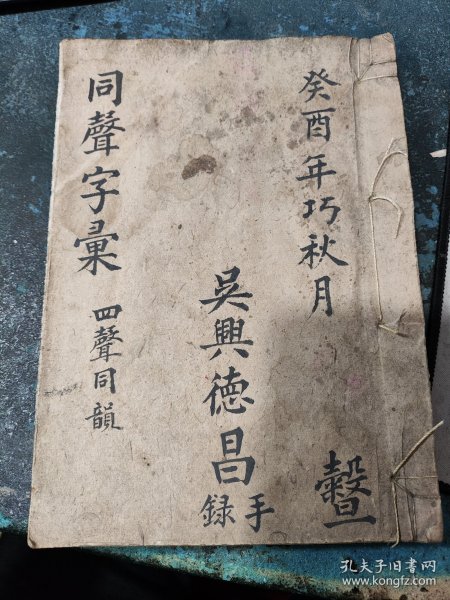 癸酉年巧秋月
吳興德昌
手录
同聲字彙
四聲同韻
孔夫子旧书网
www.kongfz.com